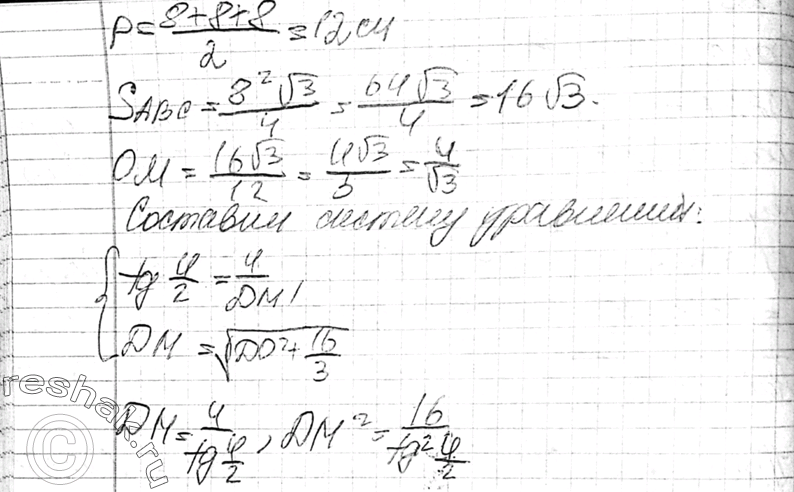 p = (8+8+8)/2 = 12 см
S ABC = 8²√3/4 = 64√3/4 = 16√3.
OM = 16√3/12 = 4√3/3 = 4/√3
Составим систему уравнений:
{ tg φ/2 = 4/DM,
DM = √(DO² + 16/3)
DM = 4/(tg φ/2), DM² = 16/(tg² φ/2)
© reshak.ru